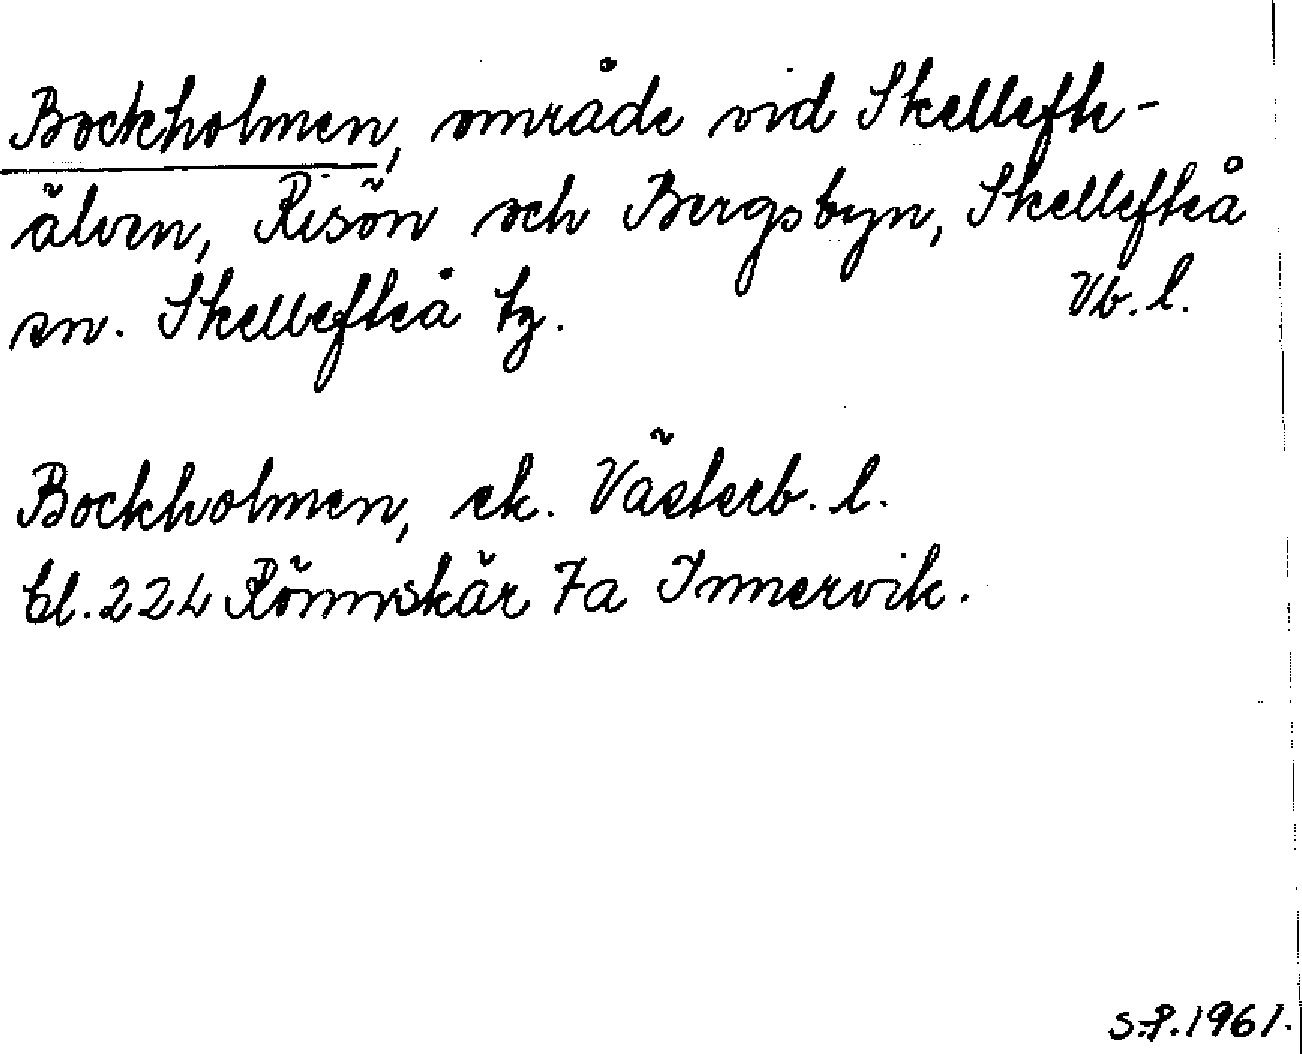 Bockholmen, område vid Skellefte-
älven, Risön och Bergsbyn, Skellefteå
sn. Skellefteå tg. Vb. l.
Bockholmen, ek. Västerb. l.
bl. 224 Rönnskär 7a Innervik.
S.P. 1961.